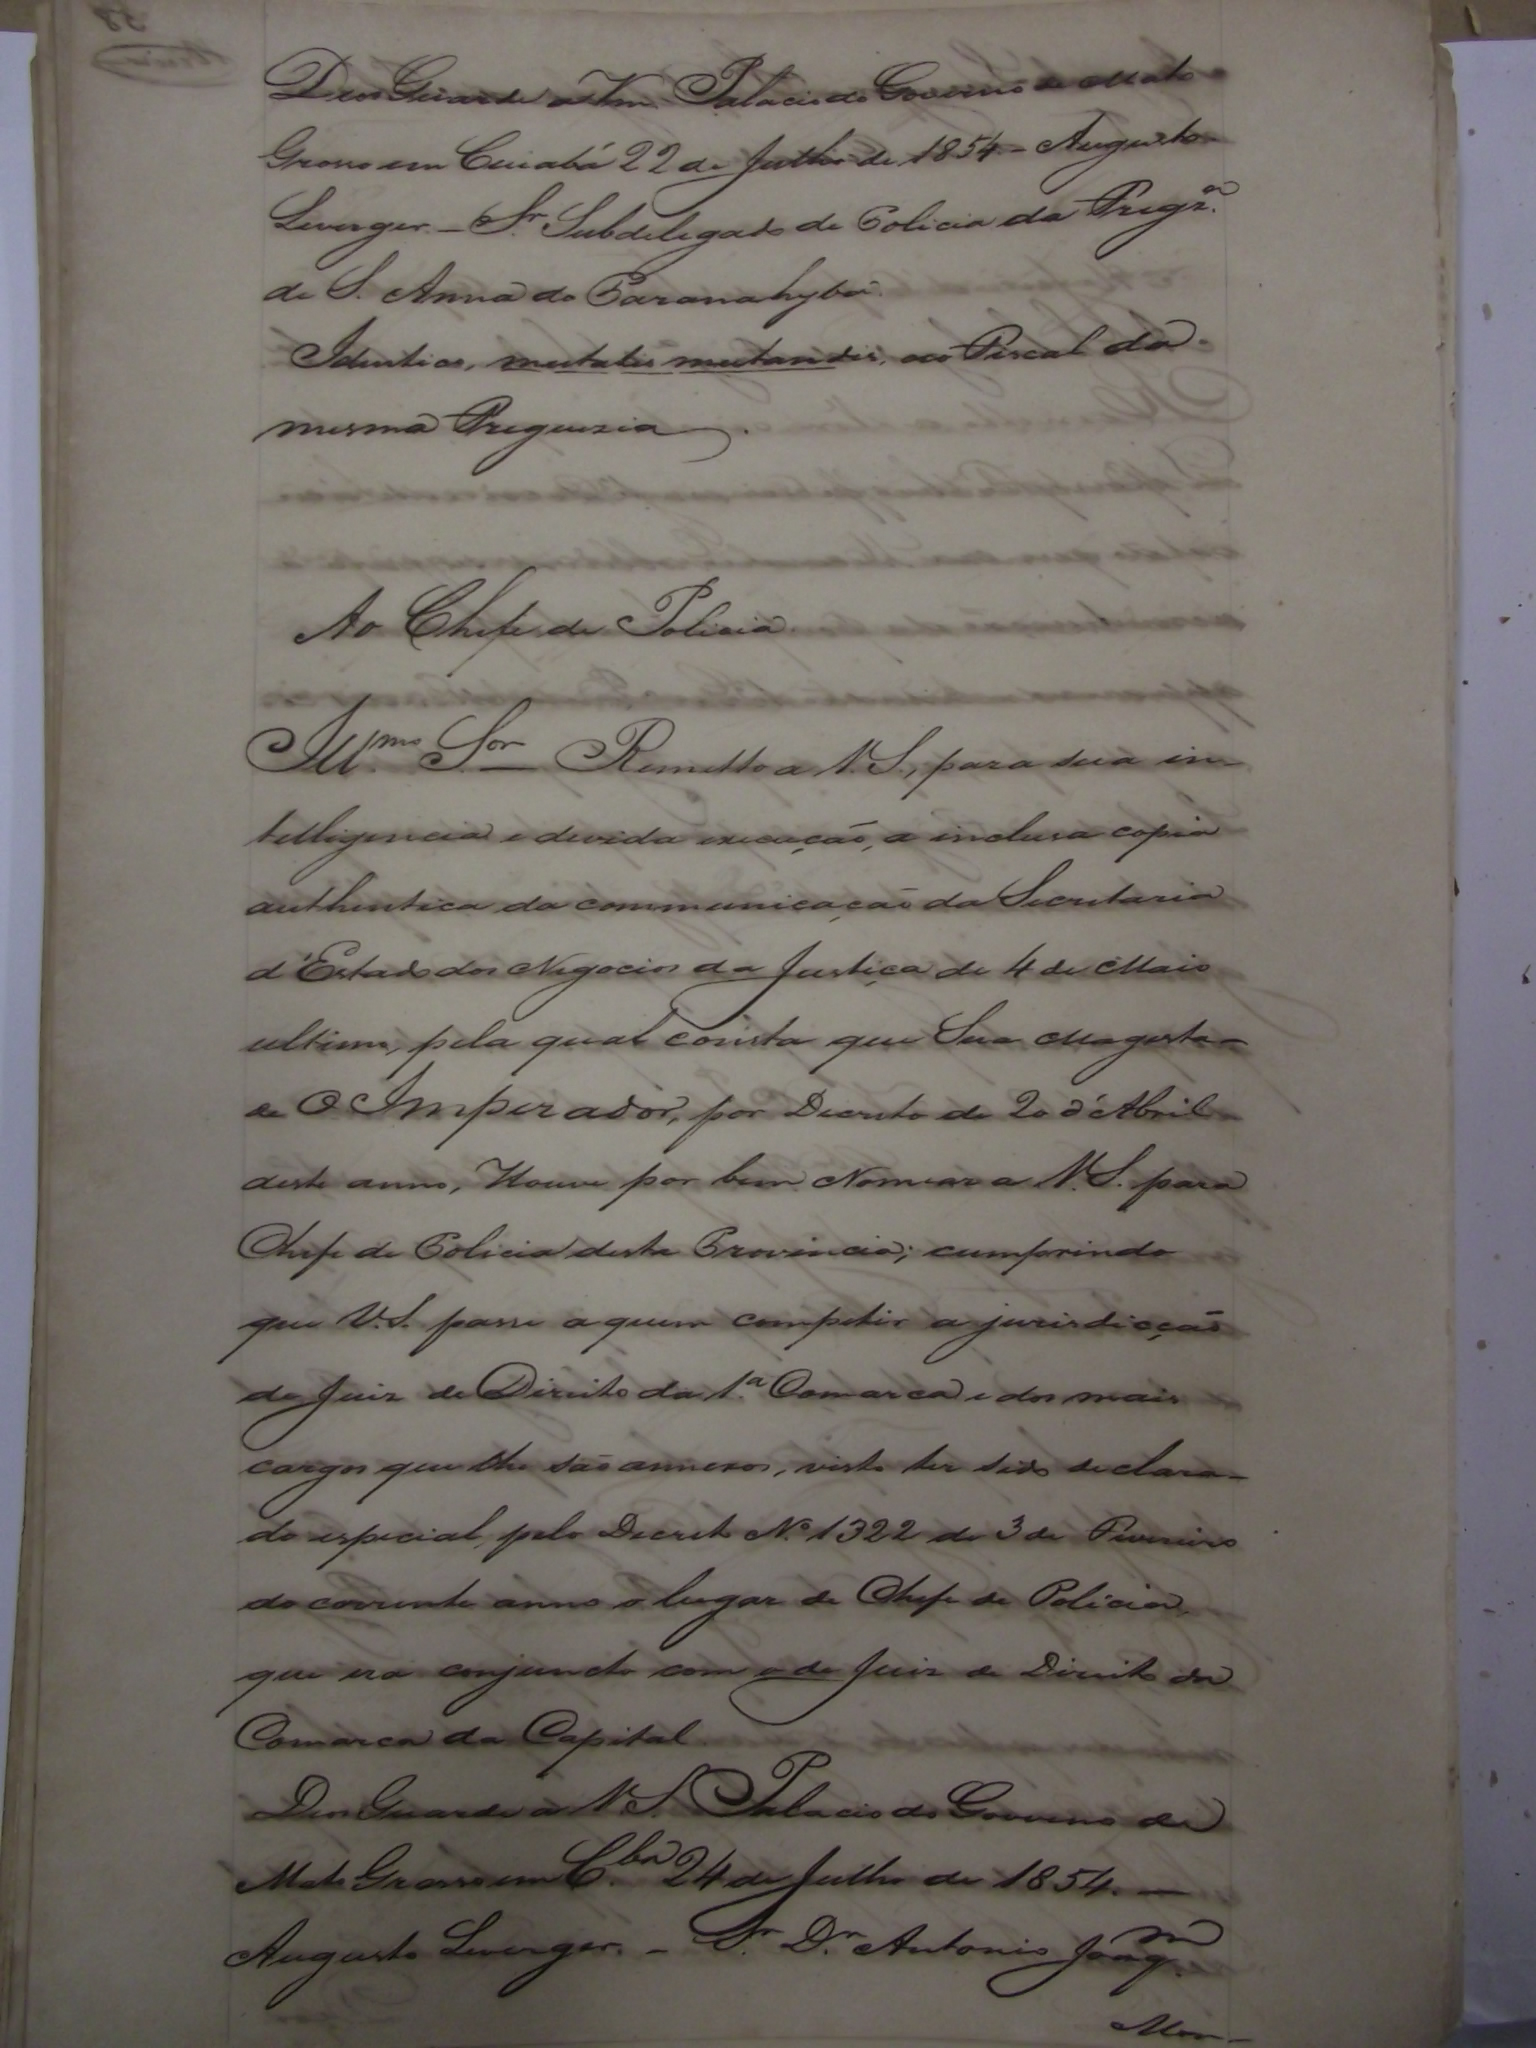 Deos Guarde a Vm. Palacio do Governo de Mato
Grosso em Cuiabá 22 de Julho de 1854 - Augusto
Leverger - Sr. Subdelegado de Policia da Fregz.ª
de S. Anna do Paranahyba.
Identico, mutatis mutandis, ao Fiscal da
mesma Freguezia.
Ao Chefe de Policia.
Ill.mo Sor - Remetto a V.S., para sua in-
telligencia e devida execução, a inclusa copia
authentica da communicação da Secretaria
d'Estado dos Negocios da Justiça de 4 de Maio
ultimo, pela qual consta que Sua Magesta-
de O Imperador, por Decreto de 20 d'Abril
deste anno, Houve por bem Nomear a V.S. para
Chefe de Policia desta Provincia; cumprindo
que V.S. passe a quem competir a jurisdicção
de Juiz de Direito da 1.ª Comarca e dos mais
cargos que lhe são annexos, visto ter sido declara-
do especial, pelo Decreto N.º 1322 de 3 de Fevereiro
do corrente anno o lugar de Chefe de Policia,
que era conjuncto com o de Juiz de Direito da
Comarca da Capital.
Deos Guarde a V.S. Palacio do Governo de
Mato Grosso em C.bá 24 de Julho de 1854. -
Augusto Leverger. - Sr. Dr. Antonio Joaq.m
Mon-